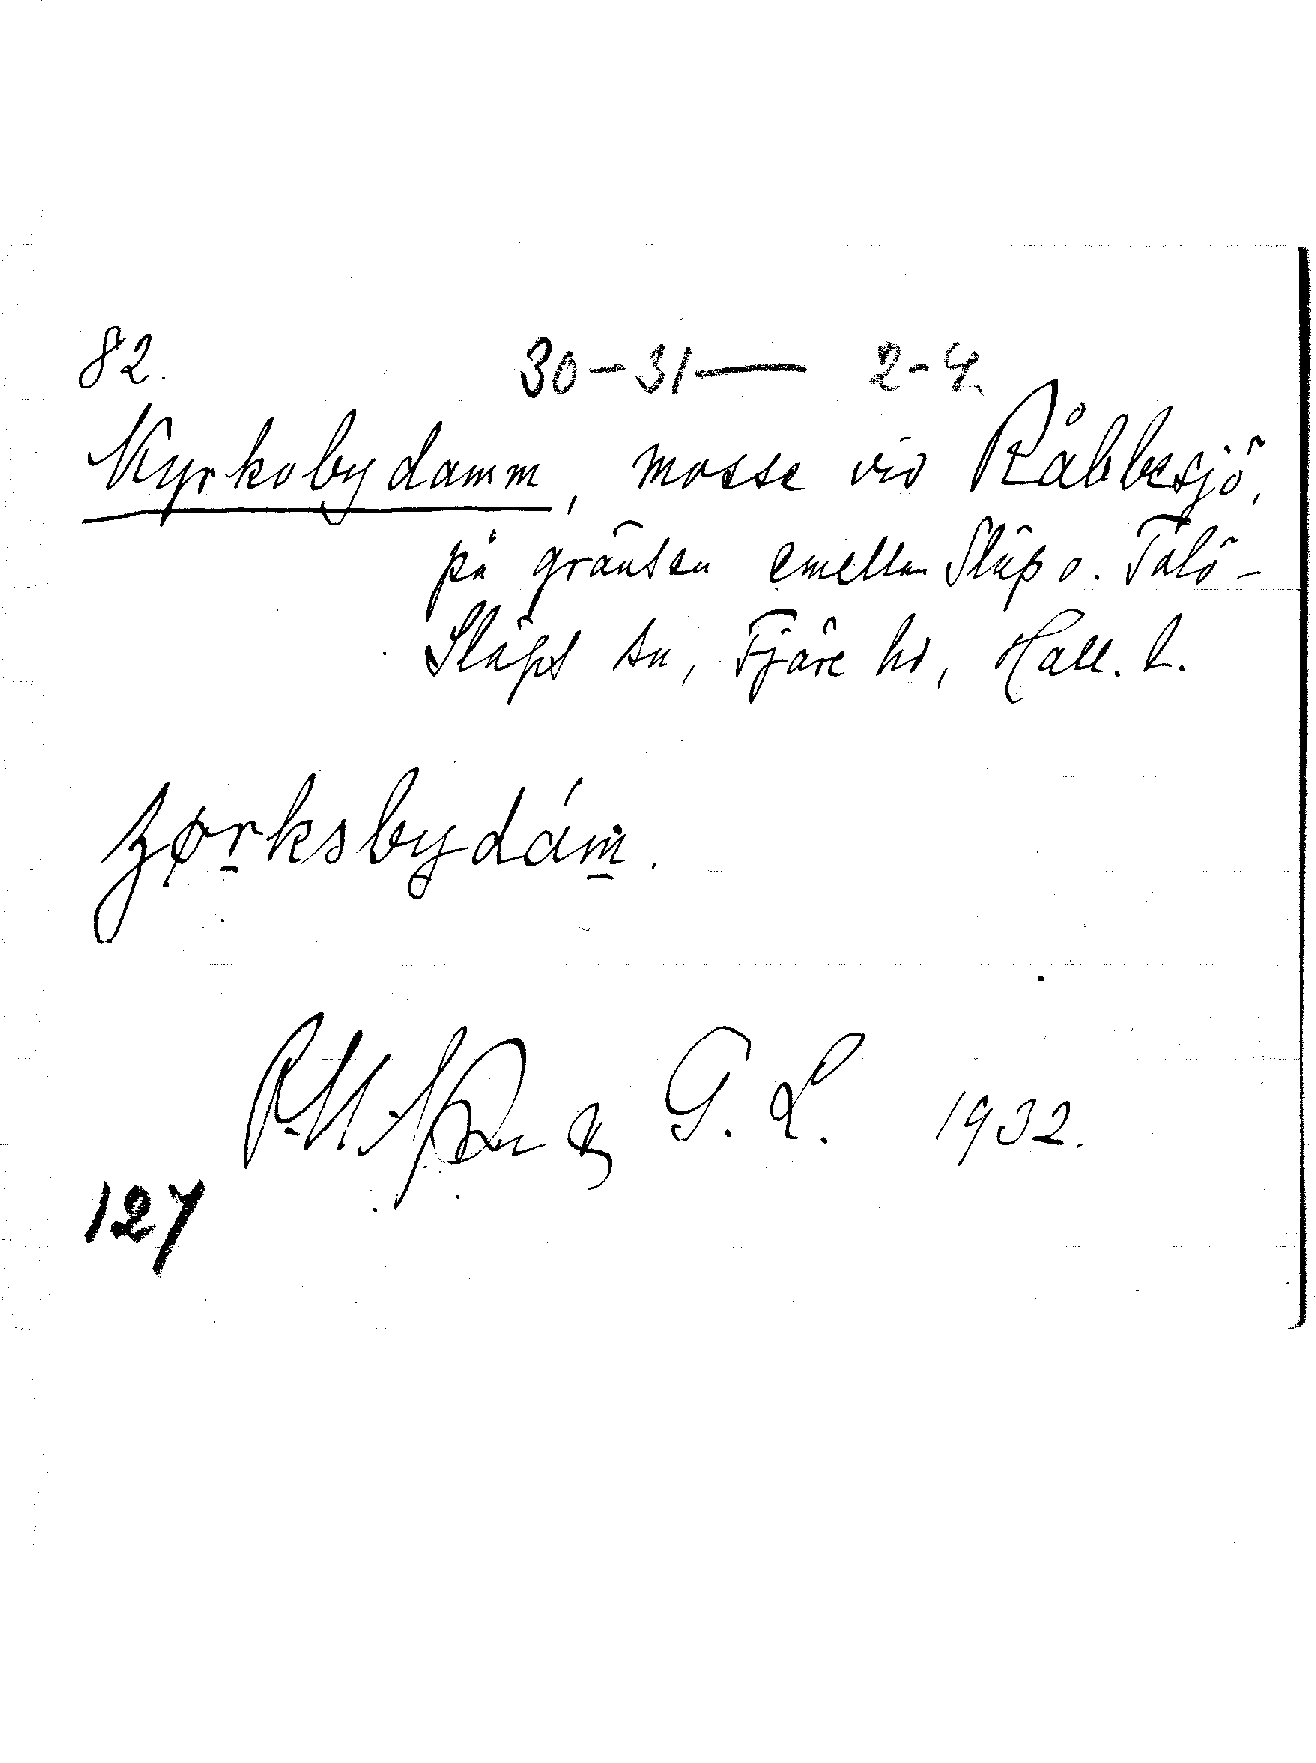 82. 30-31— 2-4.
Kyrkobydamm, mosse vid Råbbesjö,
på gränsen emellan Släp o. Tölö-
Släps sn, Fjäre hd, Hall. l.
ȥørksbydám.
G. L. 1932.
127